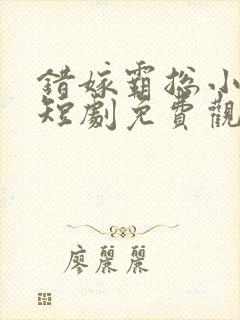 錯嫁霸總小
短劇免費觀
廖麗麗